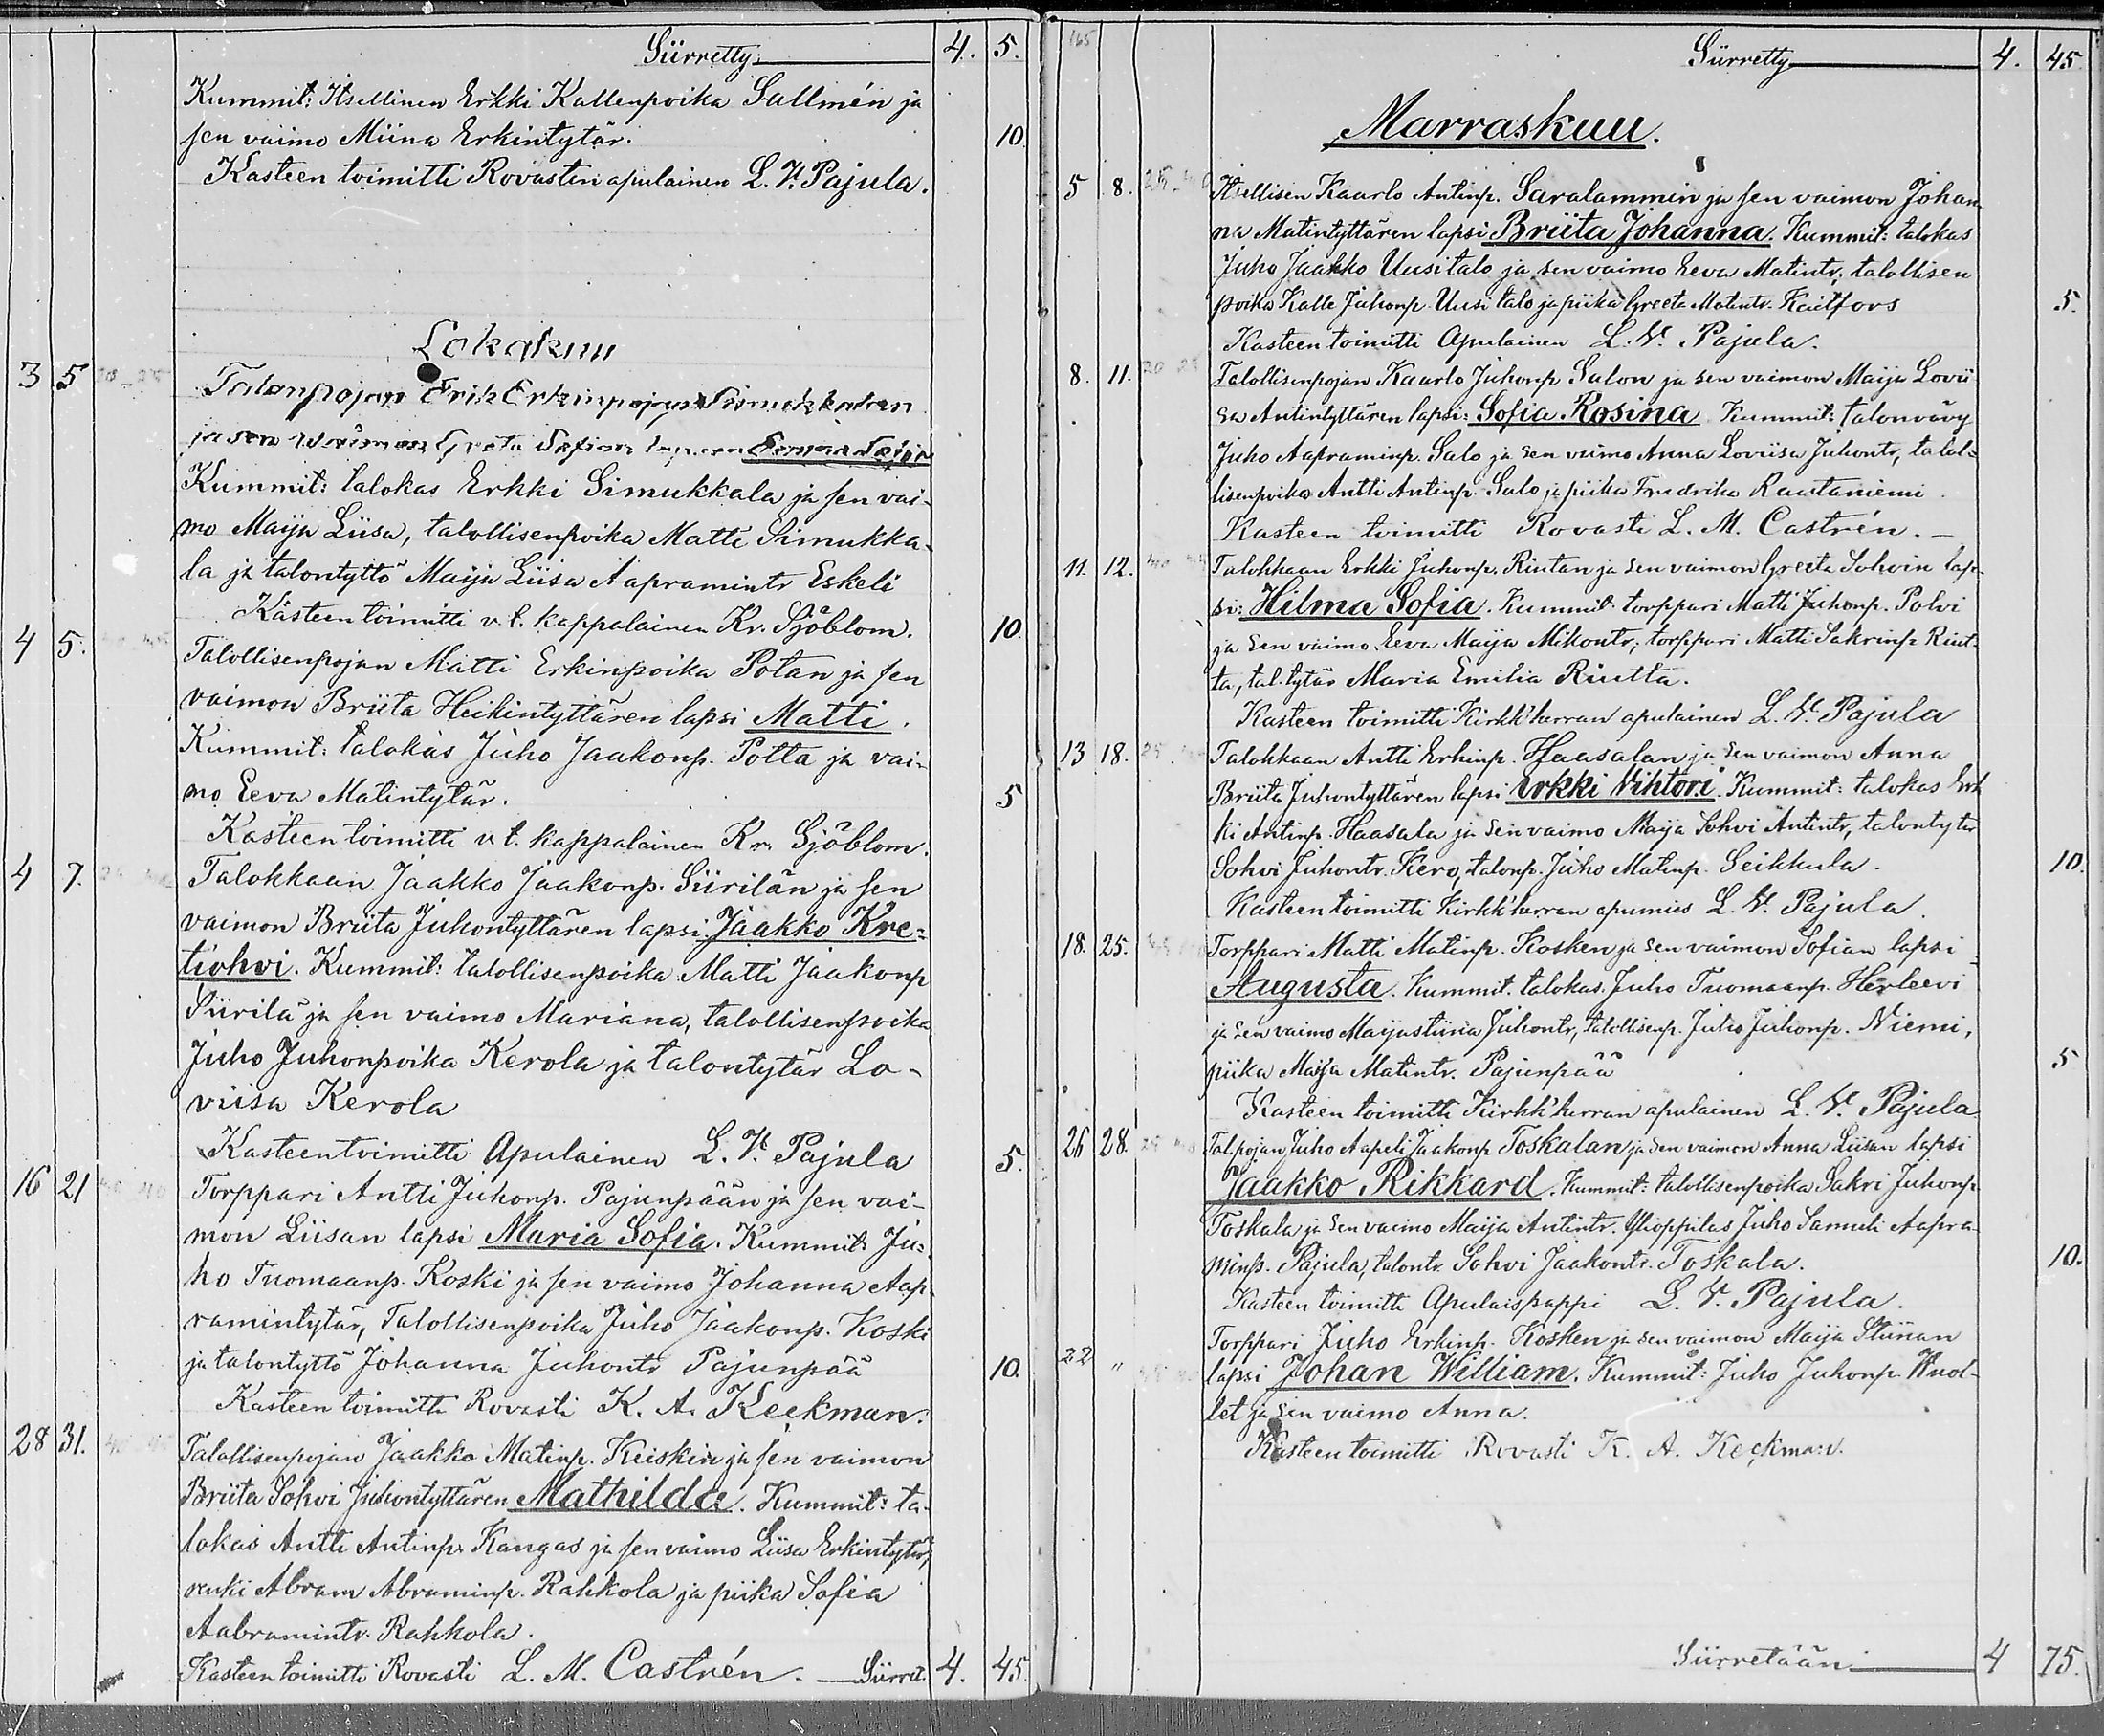 Siirretty 4. 5.
Kummit: Itsellinen Erkki Kallenpoika Sallmén ja
sen vaimo Miina Erkintytär. 10
Kasteen toimitti Rovastin apulainen L. V. Pajula.
Lokakuu
3 5 Talonpojan Erik Erkinpojan Simukkalan
ja sen waimon Greta Sofian lapsen
Kummit: talokas Erkki Simukkala ja sen vai-
mo Maija Liisa, talollisenpoika Matti Simukka-
la ja talontyttö Maija Liisa Aapramintr Eskeli
Kasteen toimitti v. t. kappalainen Kr. Sjöblom. 10
4 5. Talollisenpojan Matti Erkinpoika Potan ja sen
vaimon Briita Heikintyttären lapsi Matti.
Kummit: talokas Juho Jaakonp. Potta ja vai-
mo Eeva Matintytär. 5
Kasteen toimitti v. t. kappalainen Kr. Sjöblom.
4 7. Talokkaan Jaakko Jaakonp. Siirilän ja sen
vaimon Briita Juhontyttären lapsi Jaakko Kre=
tiohvi. Kummit: talollisenpoika Matti Jaakonp
Siirilä ja sen vaimo Mariana, talollisenpoika
Juho Juhonpoika Kerola ja talontytär Lo-
viisa Kerola
Kasteentoimitti Apulainen L. V. Pajula 5.
16 21 Torppari Antti Juhonp. Pajunpään ja sen vai-
mon Liisan lapsi Maria Sofia. Kummit: Ju=
ho Tuomaanp. Koski ja sen vaimo Johanna Aap
ramintytär, Talollisenpoika Juho Jaakonp. Koski
ja talontyttö Johanna Juhontr Pajunpää 10.
Kasteen toimitti Rovasti K. A. Keckman.
28 31. Talollisenpojan Jaakko Matinp. Keiskin ja sen vaimon
Briita Sohvi Juhontyttären Mathilda. Kummit: ta-
lokas Antti Antinp. Kangas ja sen vaimo Liisa Erkintytär,
renki Abram Abraminp. Rahkola ja piika Sofia
Aabramintr. Rahkola.
Kasteen toimitti Rovasti L. M. Castrén. Siirret. 4. 45.
165 Siirretty 4. 45
Marraskuu.
5 8. Itsellisen Kaarlo Antinp. Saralammin ja sen vaimon Johan
na Matintyttären lapsi Briita Johanna. Kummit: talokas
Juho Jaakko Uusitalo ja sen vaimo Eeva Matintr, talollisen
poika Kalle Juhonp. Uusi talo ja piika Greeta Matintr. Kaitfors 5.
Kasteen toimitti Apulainen L. V. Pajula.
8. 11. Talollisenpojan Kaarlo Juhonp Salon ja sen vaimon Maija Lovii
sa Antintyttären lapsi: Sofia Rosina Kummit: talonvävy
Juho Aapraminp. Salo ja sen vaimo Anna Loviisa Juhontr, talol=
lisenpoika Antti Antinp. Salo ja piika Fredrika Rautaniemi.
Kasteen toimitti Rovasti L. M. Castrén.
11. 12. Talokkaan Erkki Juhonp. Riutan ja sen vaimon Greeta Sohvin lap-
si: Hilma Sofia. Kummit torppari Matti Juhonp. Polvi
ja sen vaimo Eeva Maija Mikontr, torppari Matti Sakrinp Riut-
ta, tal. tytär Maria Emilia Riutta.
Kasteen toimitti Kirkk'herran apulainen L. V. Pajula
13 18. Talokkaan Antti Erkinp. Haasalan ja sen vaimon Anna
Briita Juhontyttären lapsi Erkki Vihtori. Kummit: talokas Erk
ki Antinp. Haasala ja sen vaimo Maija Sohvi Antintr, talontytär
Sohvi Juhontr. Kero, talonp. Juho Matinp. Seikkula. 10.
Kasteen toimitti Kirkk'herran apumies L. V. Pajula.
18. 25. Torppari Matti Matinp. Kosken ja sen vaimon Sofian lapsi
Augusta. Kummit. talokas Juho Tuomaanp. Herleevi
ja sen vaimo Maijastiina Juhontr, talollisenp. Juho Juhonp. Niemi,
piika Maija Matintr. Pajunpää 5
Kasteen toimitti Kirkk'herran apulainen L. V. Pajula
26 28. Tal.pojan Juho Aapeli Jaakonp Toskalan ja sen vaimon Anna Liisan lapsi
Jaakko Rikkard. Kummit: talollisenpoika Sakri Juhonp
Toskala ja sen vaimo Maija Antintr. Ylioppilas Juho Samuli Aapra-
minp. Pajula, talontr. Sohvi Jaakontr. Toskala. 10.
Kasteen toimitti Apulaispappi L. V. Pajula.
22 " Torppari Juho Erkinp. Kosken ja sen vaimon Maija Stiinan
lapsi Johan William. Kummit: Juho Juhonp. Wuol-
let ja sen vaimo Anna.
Kasteen toimitti Rovasti K. A. Keckman.
Siirretään 4 75.